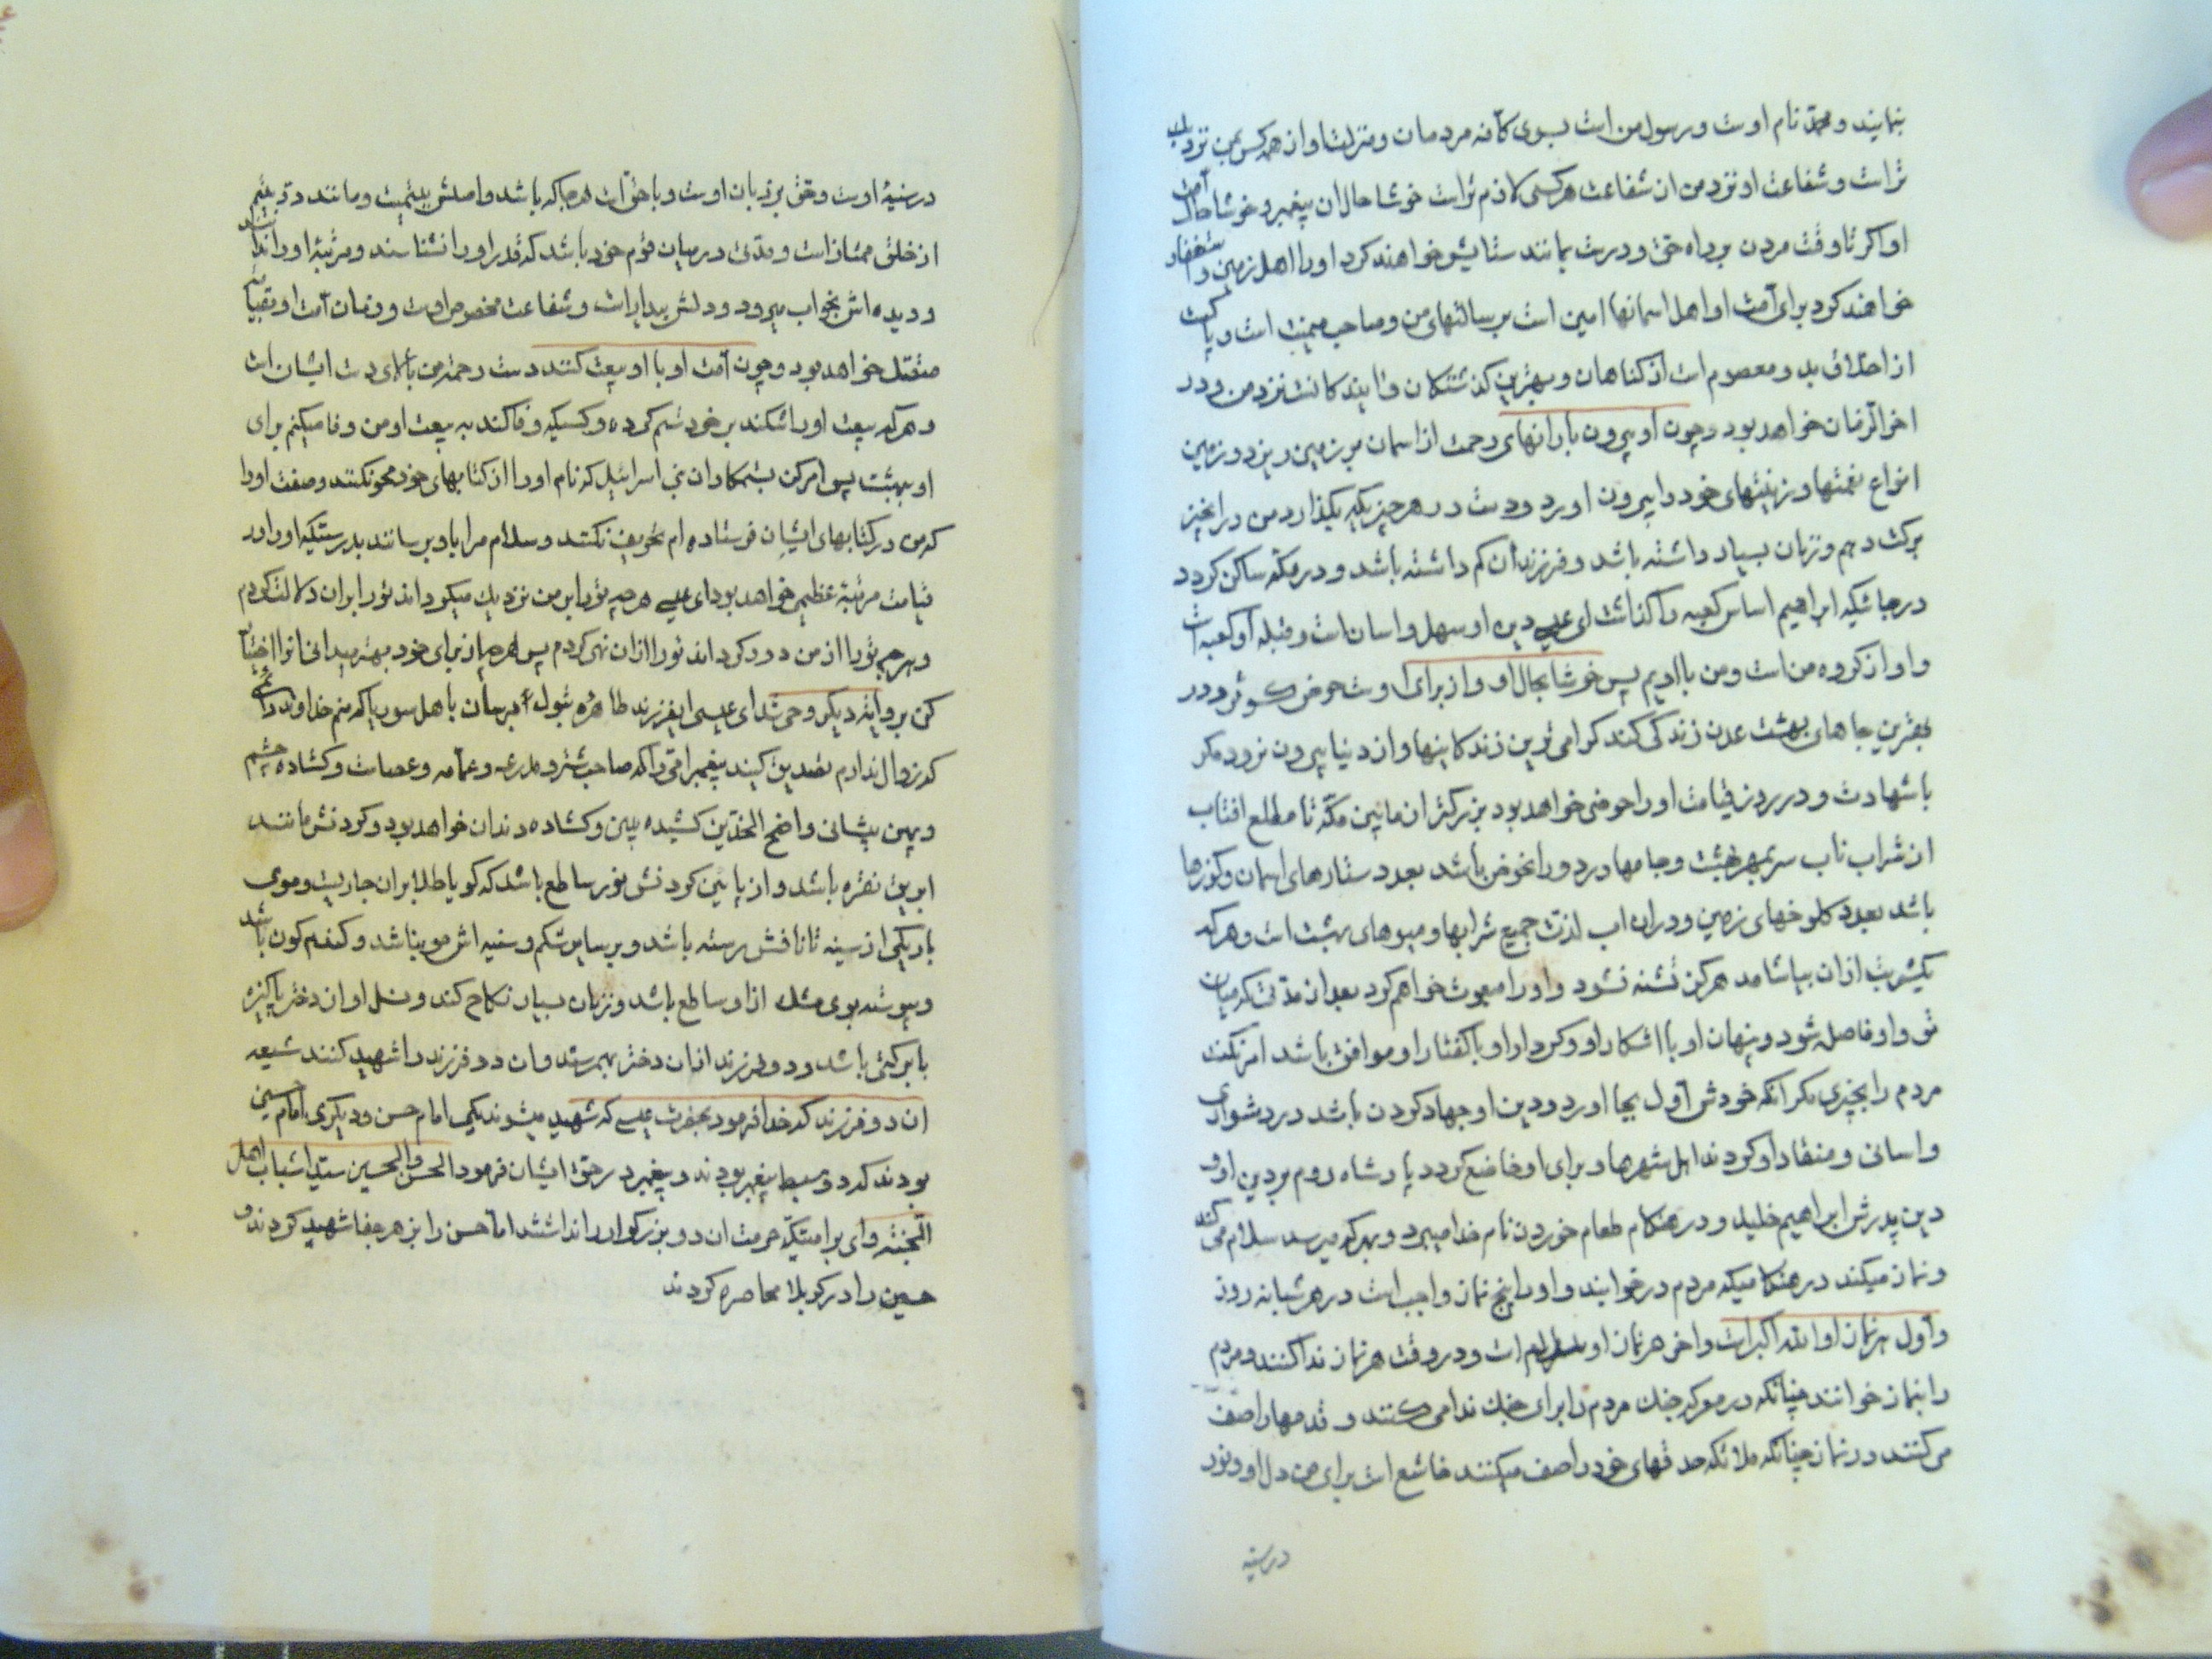 بنمایند و محمد نام اوست و رسول من است بسوی کافه مردمان و منزلت او از همه کس بمن نزدیک
تر است و شفاعت او نزد من از شفاعت هر کسی لازم تر است خوشا حال ان پیغمبر و خوشا حال امت
او اکر تا وقت مردن بر راه حق و درست بمانند ستایش خواهند کرد او را اهل زمین و استغفار
خواهند کرد برای امت او اهل اسمانها امین است بر رسالتهای من و صاحب میمنت است و پاکست
از اخلاق بد و معصوم است از کناهان و بهترین کذشتکان و ایندکانست نزد من و در
اخر الزمان خواهد بود و چون او بیرون بارانهای رحمت از اسمان بر زمین ویزد و زمین
انواع نعمتها و زینتهای خود را بیرون اورد و دست در هر چیزیکه بکذارد من در انچیز
برکت دهم و زنان بسیار داشته باشد و فرزندان کم داشته باشد و در مکه ساکن کردد
در جائیکه ابراهیم اساس کعبه را کذاشت ای عیسی دین او سهل و اسان است و قبله او کعبه است
و او از کروه من است و من با اویم پس خوشا بحال او و از برای اوست حوض کوثر و در
بهترین جاهای بهشت عدن زندکی کند کرامی ترین زندکانیها و از دنیا بیرون نرود مکر
با شهادت و در روز قیامت او را حوضی خواهد بود بزرکتر از مابین مکه تا مطلع افتاب
از شراب ناب سر بمهر بهشت و جامها در دور انحوض باشد بعدد ستارهای اسمان و کوزها
باشد بعدد کلوخهای زمین و در ان اب لذت جمیع شرابها و میوهای بهشت است و هر که
یکشربت از ان بیاشامد هرکز تشنه نشود و او را مبعوث خواهم کرد بعد از مدتی که میان
تو و او فاصله شود و پنهان او با اشکار او و کردار او با کفتار او موافق باشد امر نکند
مردم را بچیزی مکر انکه خودش اول بجا اورد و دین او جهاد کردن باشد در دشواری
و اسانی و منقاد او کردند اهل شهرها و برای او خاضع کردد پادشاه روم بر دین او و
دین پدرش ابراهیم خلیل و در هنکام طعام خوردن نام خدا میبرد و بهر که میرسد سلام می کند
و نماز میکند در هنکامیکه مردم در خوابند و او را پنج نماز واجب است در هر شبانه روز
و اول هر نماز او الله اکبر است و اخر هر نماز او سلام است و در وقت هر نماز ندا کنند و مردم
را بنماز خوانند چنانکه در معرکه جنک مردم را برای جنک ندا می کنند و قدمها را صف
می کنند در نماز چنانکه ملائکه قدمهای خود را صف میکنند خاشع است برای من دل او و نور
در سینه
در سینهٔ اوست و حق بر زبان اوست و با حق است هر جا که باشد و اصلش یتیمیست و مانند در یتیم
از خلق ممتاز است و مدتی در میان قوم خود باشد که قدر او را نشناسند و مرتبهٔ او را ندانند
و دیده اش بخواب میرود و دلش بیدار است و شفاعت مخصوص اوست و زمان امت او بقیامت
متصل خواهد بود و چون امت او با او بیعت کنند دست رحمت من بالای دست ایشان است
و هر که بیعت او را شکند بر خود ستم کرده و کسیکه وفا کند به بیعت او من وفا میکنم برای
او بهشت پس امر کن ستمکاران بنی اسرائیل که نام او را از کتابهای خود محو نکنند و صفت او را
که من در کتابهای ایشان فرستاده ام تحریف نکنند و سلام مرا باو برسانند بدرستیکه او را در
قیامت مرتبهٔ عظیمی خواهد بود ای عیسی هر چه تو را بر من نزدیک میکرداند تو را بر ان دلالت کردم
و هر چه تو را از من دور کرداند تو را از ان نهی کردم پس هر چه از برای خود بهتر میدانی انرا اختیار
کن بروایة دیکر وحی شد ای عیسی ایفرزند طاهره بتول برسان باهل سوریا که منم خداوند دائمی
که زوال ندارم تصدیق کنید پیغمبر امی را که صاحب شتر و مدرعه و عمامه و عصاست و کشاده چشم
و پهن پیشانی واضح الخدین کشیده بینی و کشاده دندان خواهد بود و کردنش مانند
ابریق نقره باشد و از پایین کردنش نور ساطع باشد که کویا طلا بر ان جاریست و موی
باریکی از سینه تا نافش رسته باشد و بر سایر شکم و سینه اش مو نباشد و کندم کون باشد
و پیوسته بوی مشک از او ساطع باشد و زنان بسیار نکاح کند و نسل او از دختر پاکیزه
با برکتی باشد و دو فرزند از ان دختر بهمرسد و ان دو فرزند را شهید کنند شیعه
ان دو فرزند که خدا فرمود بحضرت عیسی که شهید میشوند یکی امام حسن و دیکری امام حسین
بودند که دو سبط پیغمبر بودند و پیغمبر در حق ایشان فرمود الحسن و الحسین سیدا شباب اهل
الجنته وای بر امتیکه حرمت ان دو بزرکوار را نداشتند اما حسن را بزهر جفا شهید کردند و
حسین را در کربلا محاصره کردند